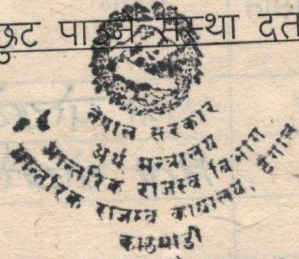 छुट पाउने संस्था दर्ता
नेपाल सरकार
अर्थ मन्त्रालय
आन्तरिक राजस्व विभाग
आन्तरिक राजस्व कार्यालय, टंगाल
काठमाडौं